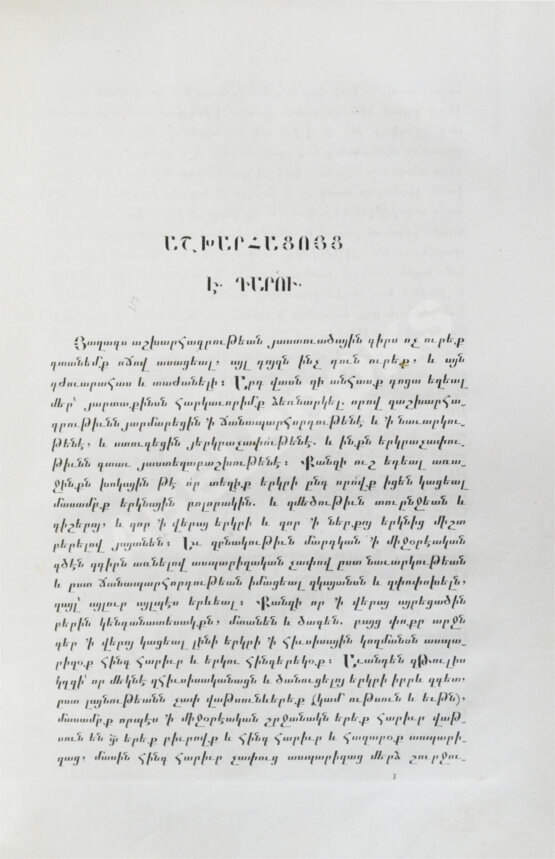 ԱՇԽԱՐՀԱՑՈՅՑ
Է ԴԱՐՈՒ
Յաղագս աշխարհագրութեան յաստուածային գիրս ոչ ուրեք
գտանեմք ոճով ասացեալ, այլ դոյզն ինչ զուն ուրեք, և այն
դժուարահաս և տաժանելի։ Արդ վասն զի անհաս.ք դոցա եղեալ
մեր՝ յարտաքինսն հարկաւորիմք ձեռնարկել. որով զաշխարհա-
գրութիւնն յարմարեցին ՚ի ճանապարհորդութենէ և ՚ի նաւարկու-
թենէ, և ստուգեցին յերկրաչափութենէ. և ինքն երկրաչափու-
թիւնն գտաւ յաստեղաբաշխութենէ։ Քանզի ուշ եղեալ առա-
ջինքն խոկային թէ ՛որ տեղիք երկրի ընդ որովք իցեն կացեալ
մասամբք երկնային բոլորակին. և զմեծութիւն տուընջեան և
գիշերոյ, և զոր ՚ի վերայ երկրի և զոր ՚ի ներքոյ երկնից միշտ
բերելով յայտնեն։ Եւ զբնակութիւն մարդկան ՚ի միջօրէական
գծէն զդիրն առնելով ասպարիզական չափով ըստ նաւարկութեան
և ըստ ճանապարհորդութեան իմացեալ զկայսնան և զփոփոխելն,
զայլ՝ այլուր այլպէս երևեալ։ Քանզի որ ՚ի վերայ այրեցածին
բերին կենդանատեսակքն, մտանեն և ծագեն. բայց փոքր արջն
զեր ՚ի վերոյ կացեալ լինի երկրի ՚ի հիւսիսային կողմանսն ասպա-
րիզօք հինգ հարիւր և երկու հինգերեկօք։ Եւանդեն զԹուլիս
կղզի՝ որ մեկնէ զհիւսիսականացն և ծանուցելոյ երկրի իբրև զգետ,
ըստ լայնութեանն չափ վաթսուներեք (կամ ութսուն և եւթն),
մասամբք որպէս ՚ի միջօրէական շրջանակն երեք հարիւր վաթ-
սուն են երեք բիւրովք և հինգ հարիւր և հազարօք ասպարի-
զաց, մասին հինգ հարիւր չափուց ասպարիզաց մերձ շուրջու-
1